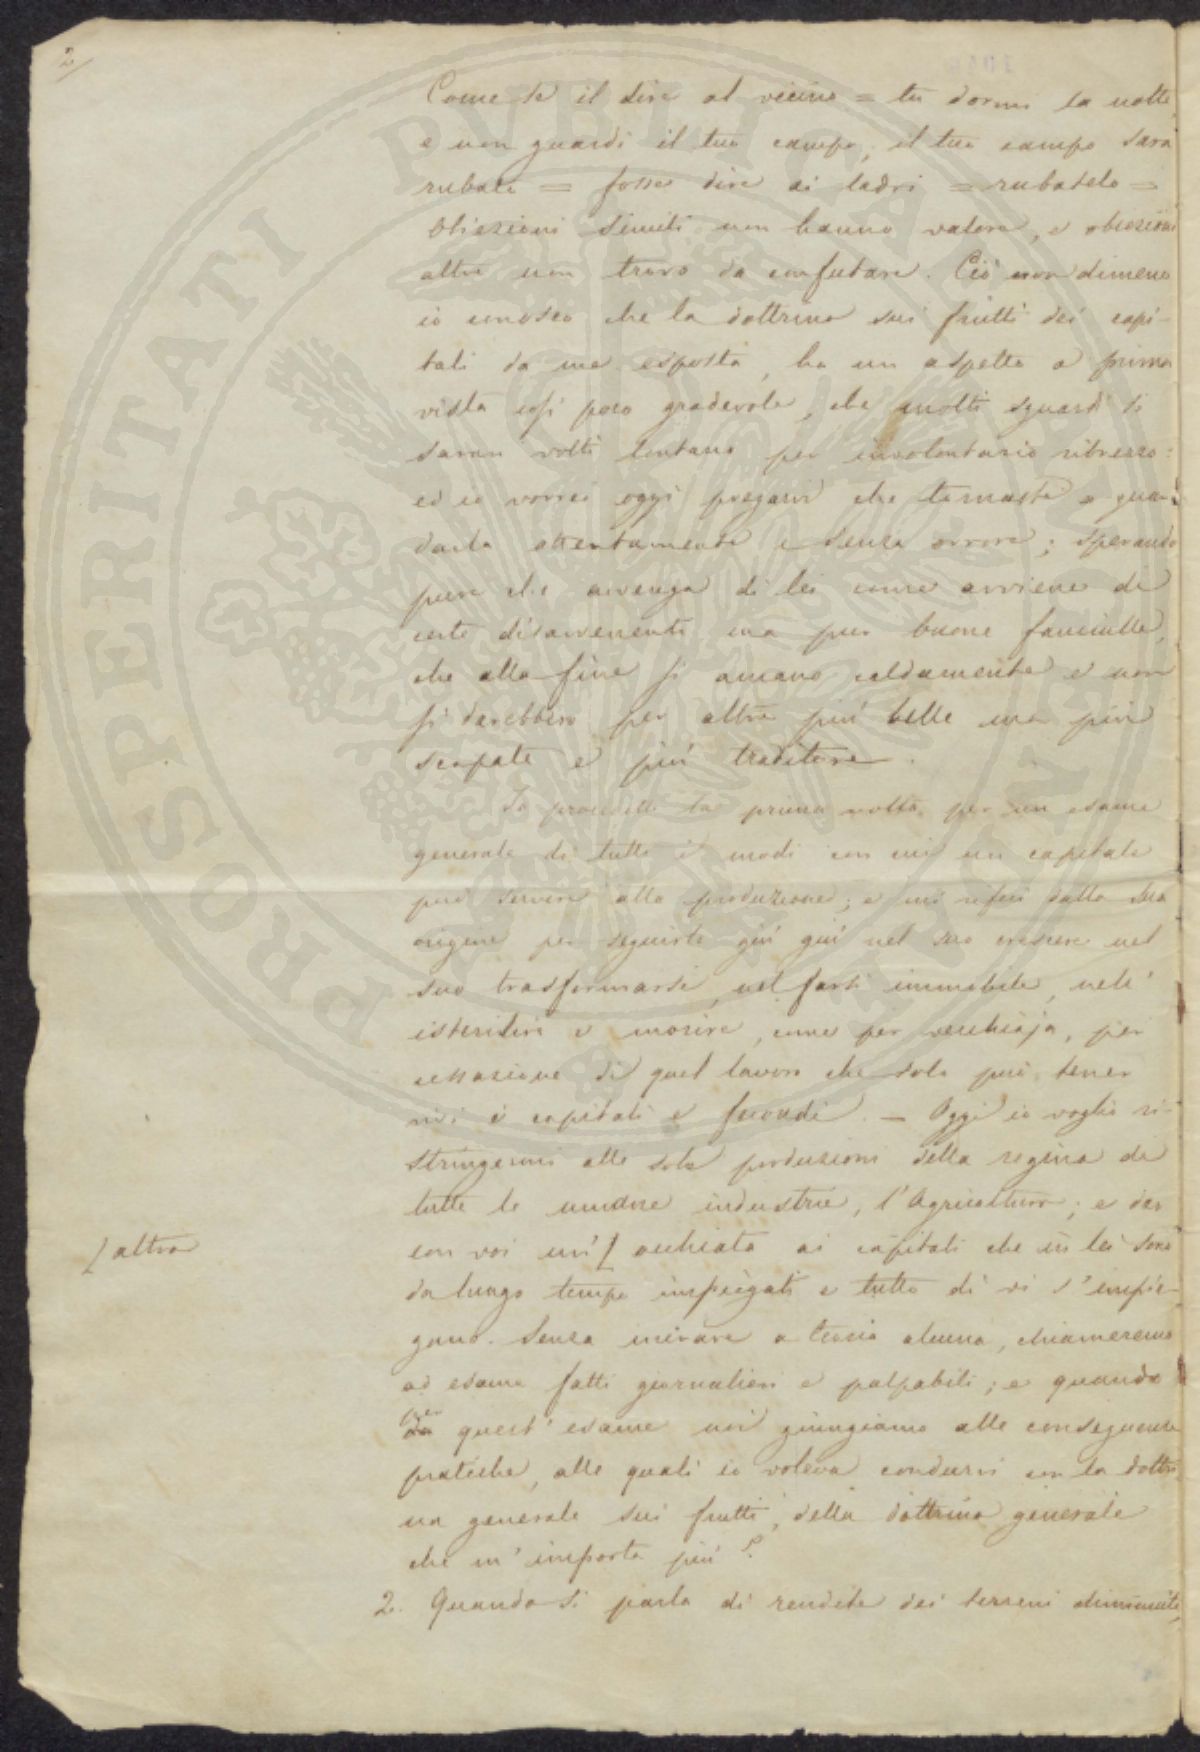 2/
Come se il dire al vicino = tu dormi la notte
e non guardi il tuo campo, il tuo campo sarà
rubato = fosse dire ai ladri = rubatelo =
Obiezioni simili non hanno valore, e obiezioni
altre non trovo da confutare. Ciò non dimeno
io conosco che la dottrina sui frutti dei capi-
tali da me esposta, ha un aspetto a prima
vista così poco gradevole, che molti sguardi si
saran volti lontano per involontario ribrezzo:
ed io vorrei oggi pregarvi che tornaste a guar-
darla attentamente e senza orrore; sperando
pure che avvenga di lei come avviene di
certe disavvenenti ma pur buone fanciulle,
che alla fine si amano caldamente e non
si darebbero per altre più belle ma più
scapate e più traditore.
Io procedetti la prima volta per un esame
generale di tutti i modi con cui un capitale
può servire alla produzione; e mi rifeci dalla sua
origine per seguirlo giù giù nel suo crescere nel
suo trasformarsi, nel farsi immobile, nell'
isterilire e morire, come per vecchiaja, per
cessazione di quel lavoro che solo può tener
vivi i capitali e fecondi. — Oggi io voglio ri-
stringermi alle sole produzioni della regina di
tutte le umane industrie, l'Agricoltura; e dar
con voi un' [ occhiata ai capitali che in lei sono
[ altra
da lungo tempo impiegati e tutto dì vi s'impie-
gano. Senza mirare a teoria alcuna, chiameremo
ad esame fatti giornalieri e palpabili; e quando
per
da quest'esame noi giungiamo alle conseguenze
pratiche, alle quali io voleva condurvi con la dottri
na generale sui frutti, della dottrina generale
che m'importa più?
2. Quando si parla di rendite dei terreni diminuite,